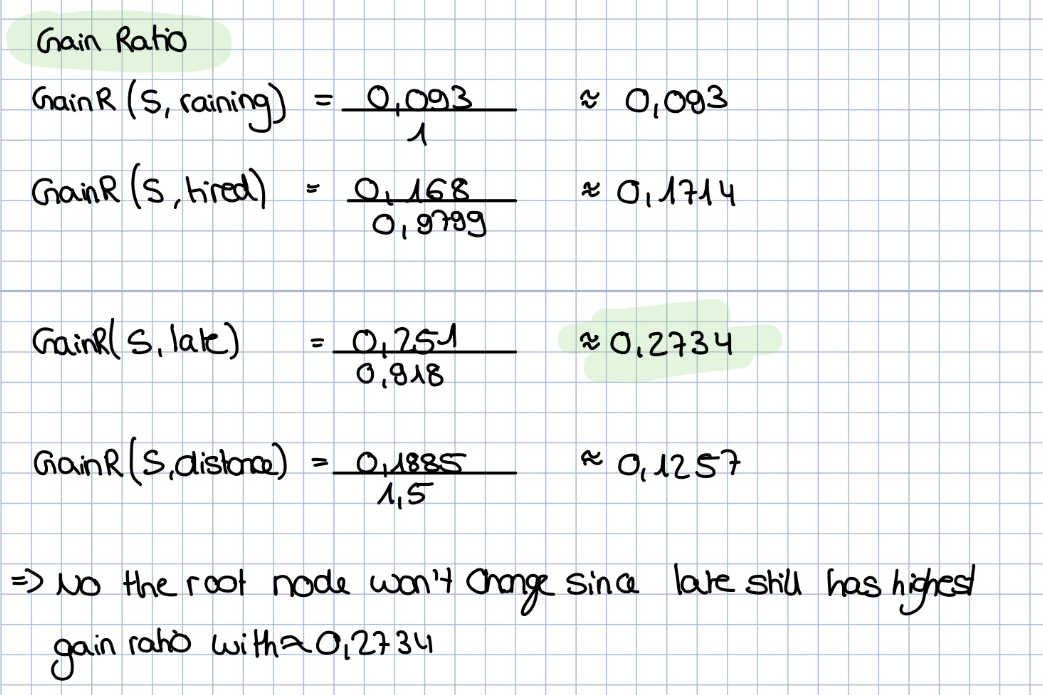 Gain Ratio
GainR (S, raining) = 0,093 / 1 ≈ 0,093
GainR (S, tired) = 0,168 / 0,9799 ≈ 0,1714
GainR(S, late) = 0,251 / 0,918 ≈ 0,2734
GainR(S,distance) = 0,1885 / 1,5 ≈ 0,1257
=> No the root node won't change since late still has highest
gain ratio with ≈ 0,2734